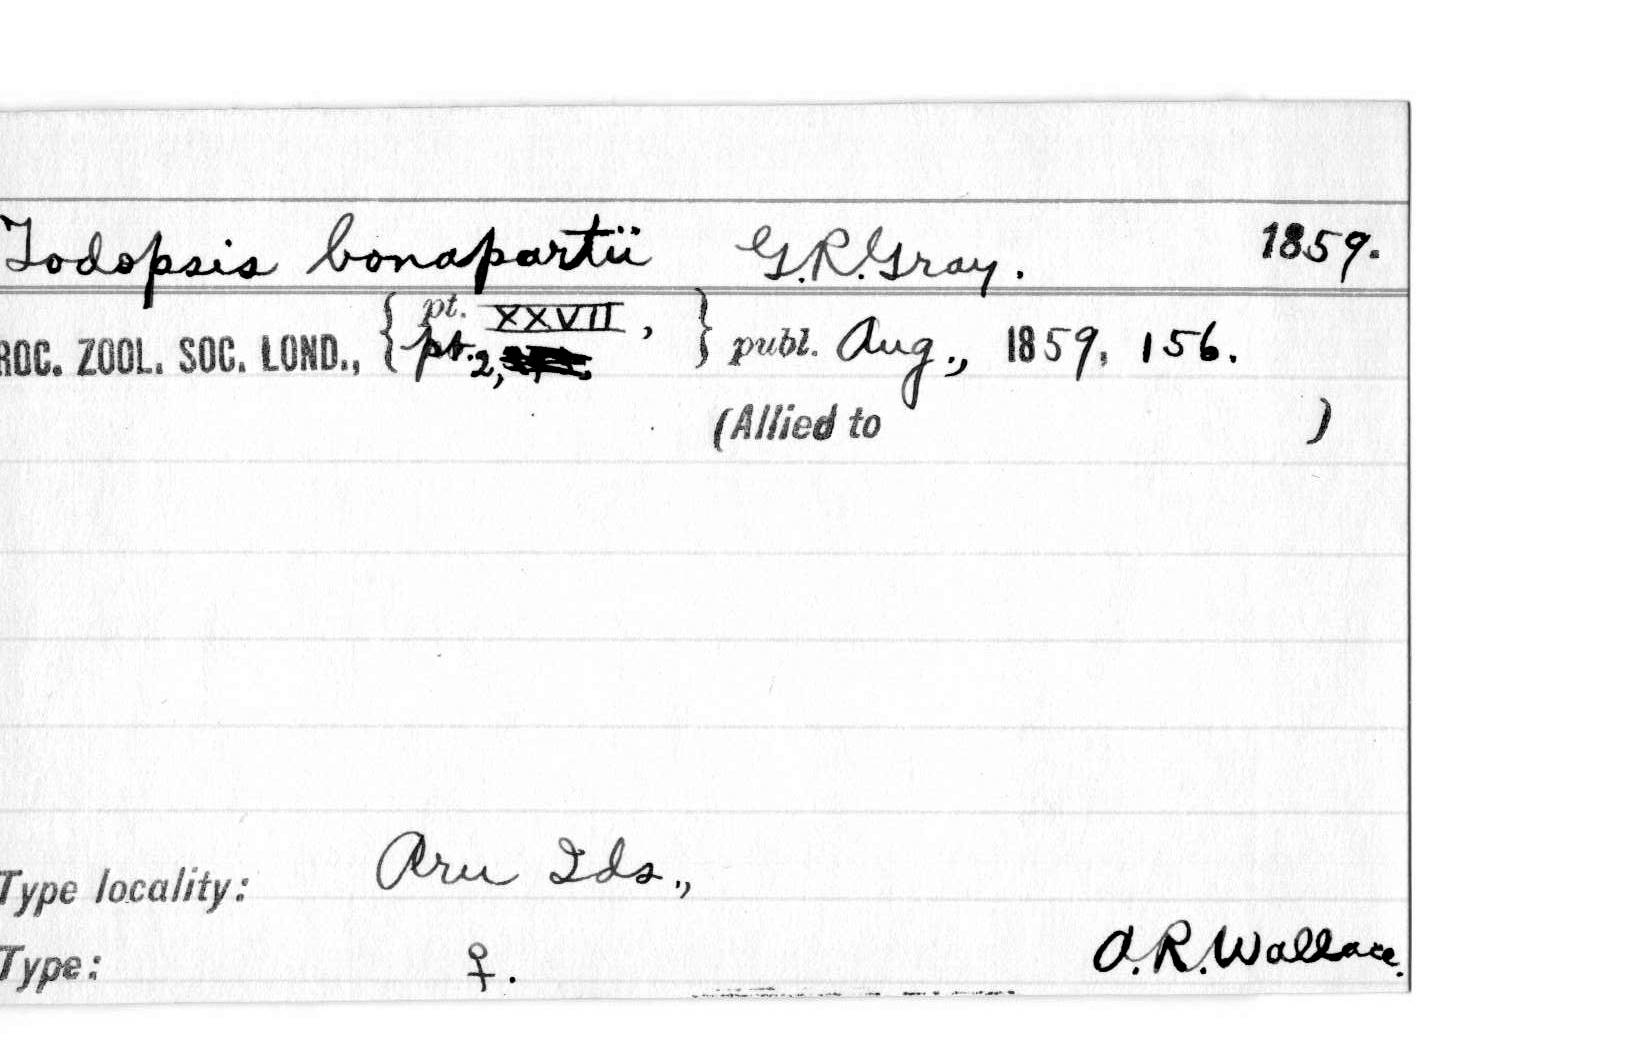 Todopsis bonapartii G.R.Gray. 1859.
ROC. ZOOL. SOC. LOND., { pt. XXVII, pt. 2, } publ. Aug., 1859, 156.
(Allied to )
Type locality: Aru Ids.,
Type: ♀. A.R.Wallace.